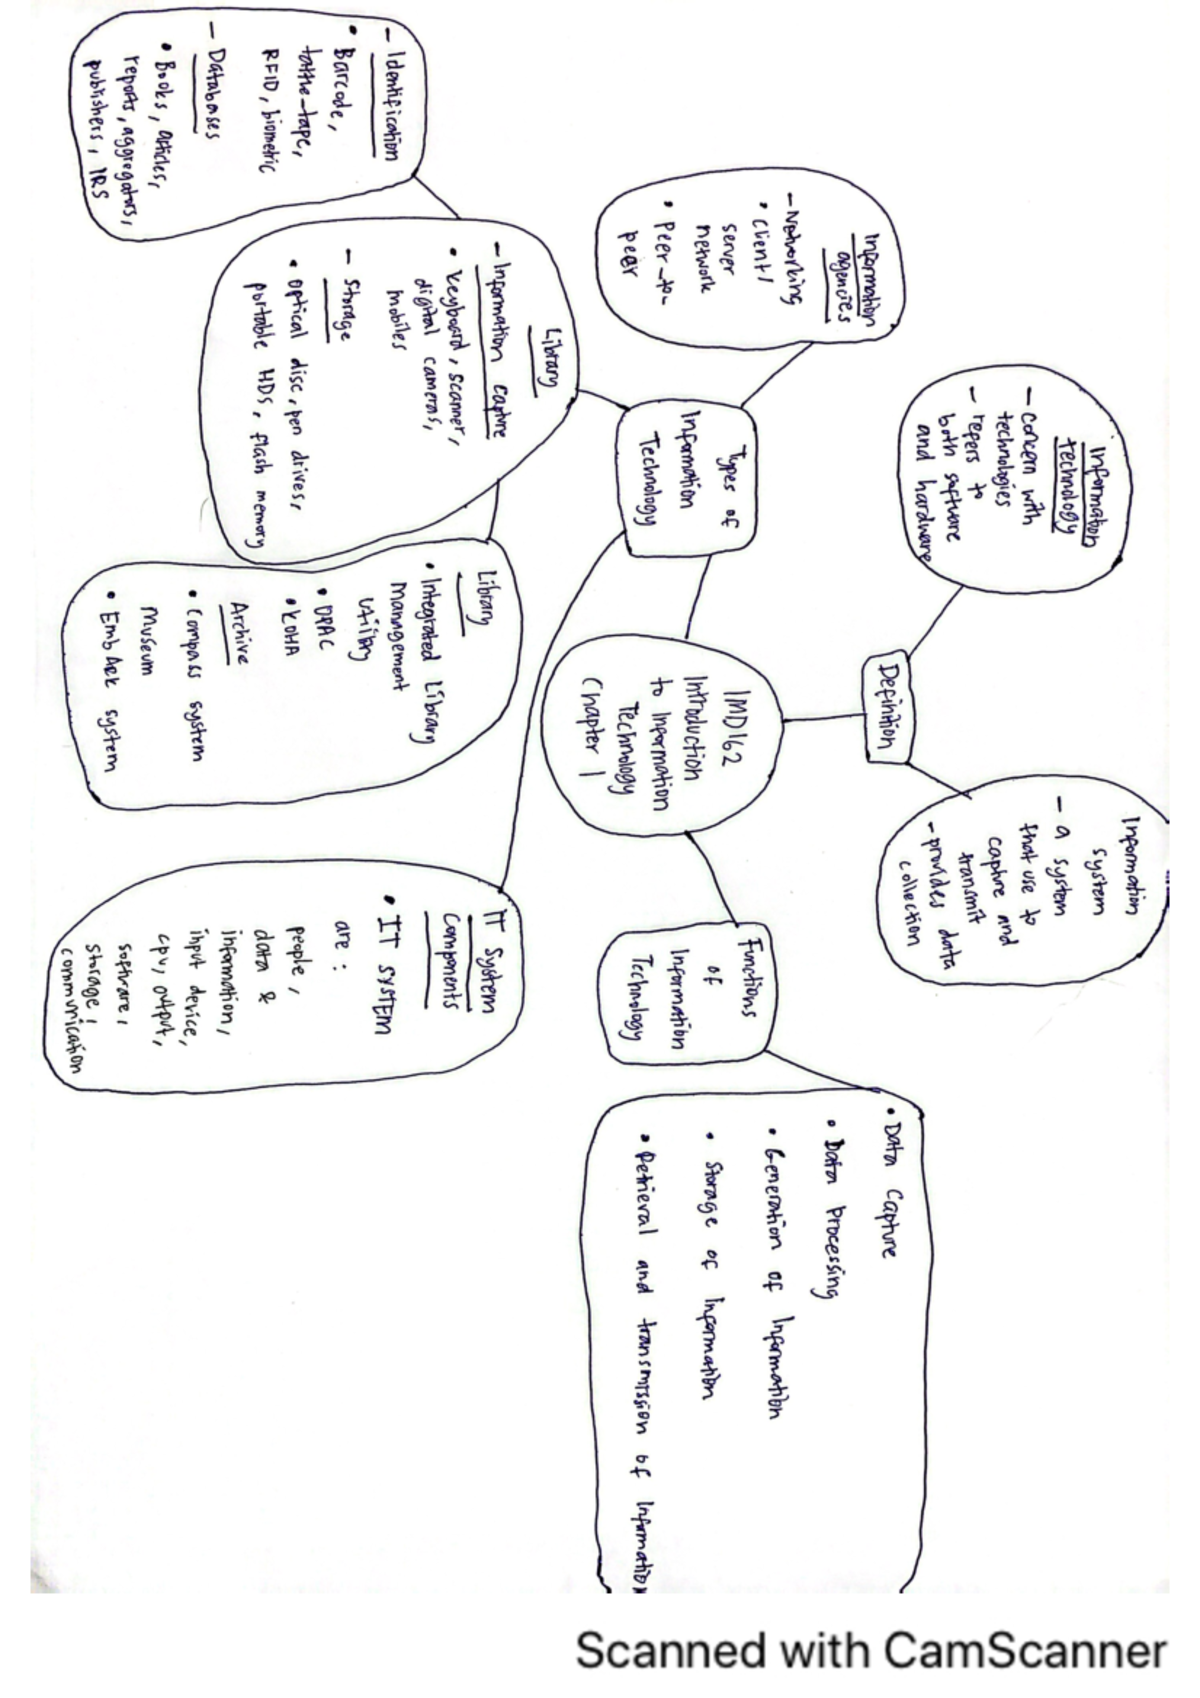 Information
technology
- concern with
technologies
- refers to
both software
and hardware
Definition
Information
system
- a system
that use to
capture and
transmit
- provides data
collection
Information
agencies
- Networking
• Client/
server
network
• Peer-to-
peer
Types of
Information
Technology
IMD162
Introduction
to Information
Technology
Chapter 1
Functions
of
Information
Technology
• Data Capture
• Data Processing
• Generation of Information
• Storage of Information
• Retrieval and transmission of Information
Library
- Information capture
• keyboard, scanner,
digital cameras,
mobiles
- Storage
• optical disc, pen drives,
portable HDS, flash memory
- Identification
• Barcode,
tattle-tape,
RFID, biometric
- Databases
• Books, articles,
reports, aggregators,
publishers, IRS
Library
• Integrated Library
Management
Utility
• OPAC
• KOHA
Archive
• Compass system
Museum
• EmbArk system
IT System
Components
• IT SYSTEM
are :
people,
data &
information,
input device,
cpu, output,
software,
storage,
communication
Scanned with CamScanner